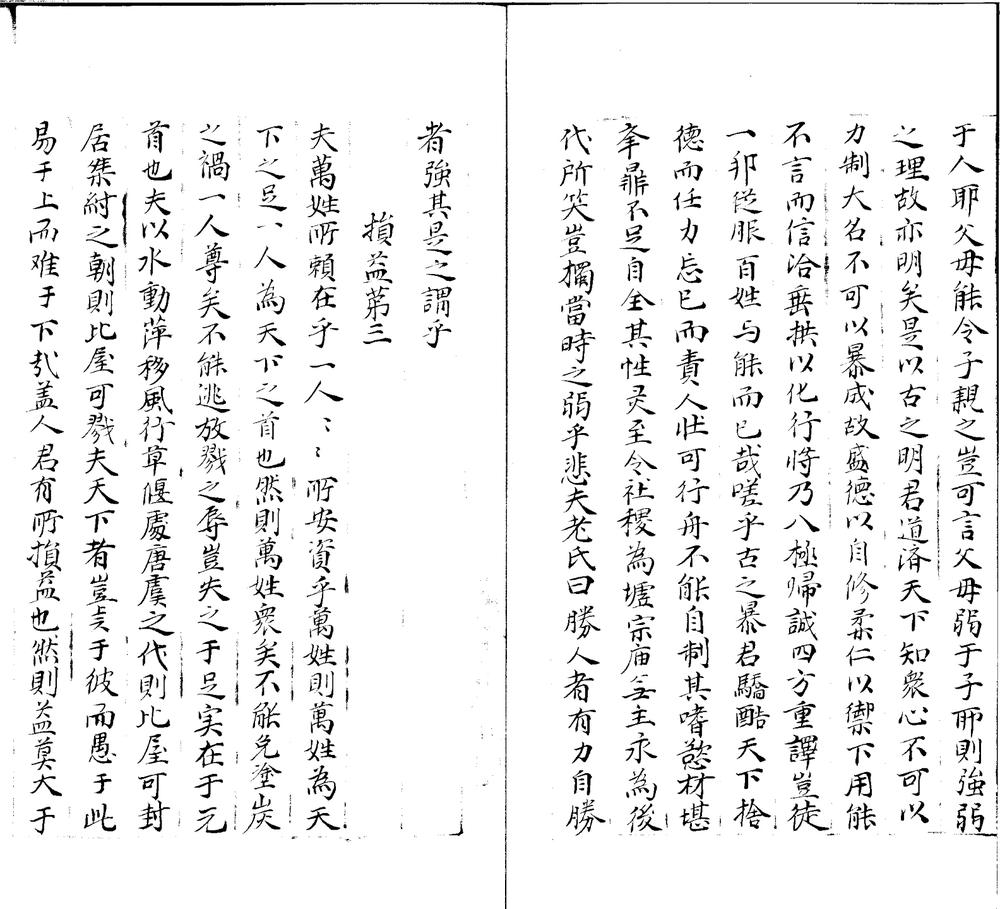 于人耶父毋能令子親之豈可言父毋弱于子耶則強弱
之理故亦明矣是以古之明君道済天下知衆心不可以
力制大名不可以暴成故盛德以自修柔仁以禦下用能
不言而信洽垂拱以化行将乃八極歸誠四方重譯豈徒
一邦從服百姓与能而已哉嗟乎古之暴君驕酷天下捨
德而任力忘已而責人壮可行舟不能自制其嗜慾材堪
举鼎不足自全其性灵至令社稷為墟宗庙無主永為後
代所笑豈獨當時之弱乎悲夫老氏曰勝人者有力自勝
者強其是之謂乎
損益第三
夫萬姓所賴在乎一人〻〻所安資乎萬姓則萬姓為天
下之足一人為天下之首也然則萬姓衆矣不能免塗炭
之禍一人尊矣不能逃放戮之辱豈失之于足实在于元
首也夫以水動萍移風行草偃處唐虞之代則比屋可封
居桀紂之朝則比屋可戮夫天下者豈賢于彼而愚于此
易于上而难于下哉盖人君有所損益也然則益莫大于